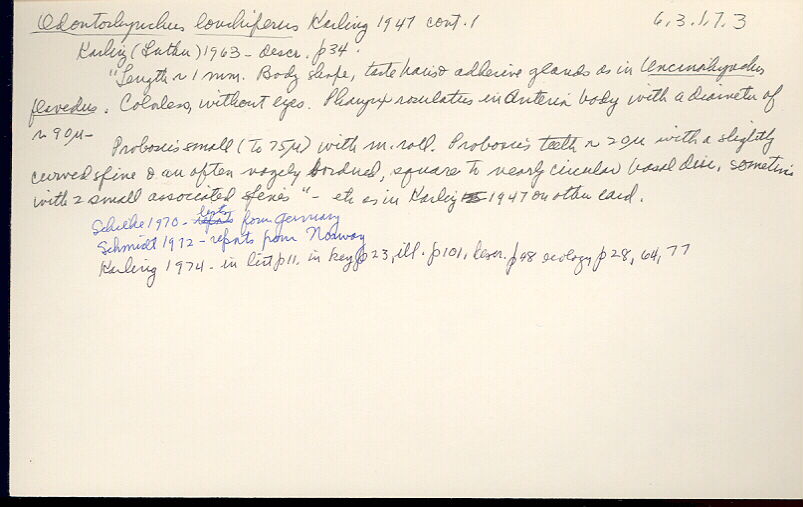 Odontorhynchus lonchiferus Karling 1947 cont. 1 6.3.1.7.3
Karling (Luther) 1963 - descr. p34.
"Length ~ 1 mm. Body shape, taste hairs & adhesive glands as in Uncinorhynchus
flavidus. Colorless, without eyes. Pharynx rosulatus in anterior body with a diameter of
~ 90µ-
Proboscis small (to 75µ) with m. roll. Proboscis teeth ~ 20µ with a slightly
curved spine & an often vaguely bordered, square to nearly circular basal disc, sometimes
with 2 small associated " - etc as in Karling 1947 on other card.
Schilke 1970 - lists from Germany
Schmidt 1972 - reports from Norway
Karling 1974 - in list p11, in key p23, ill. p101, descr. p48 ecology p28, 64, 77